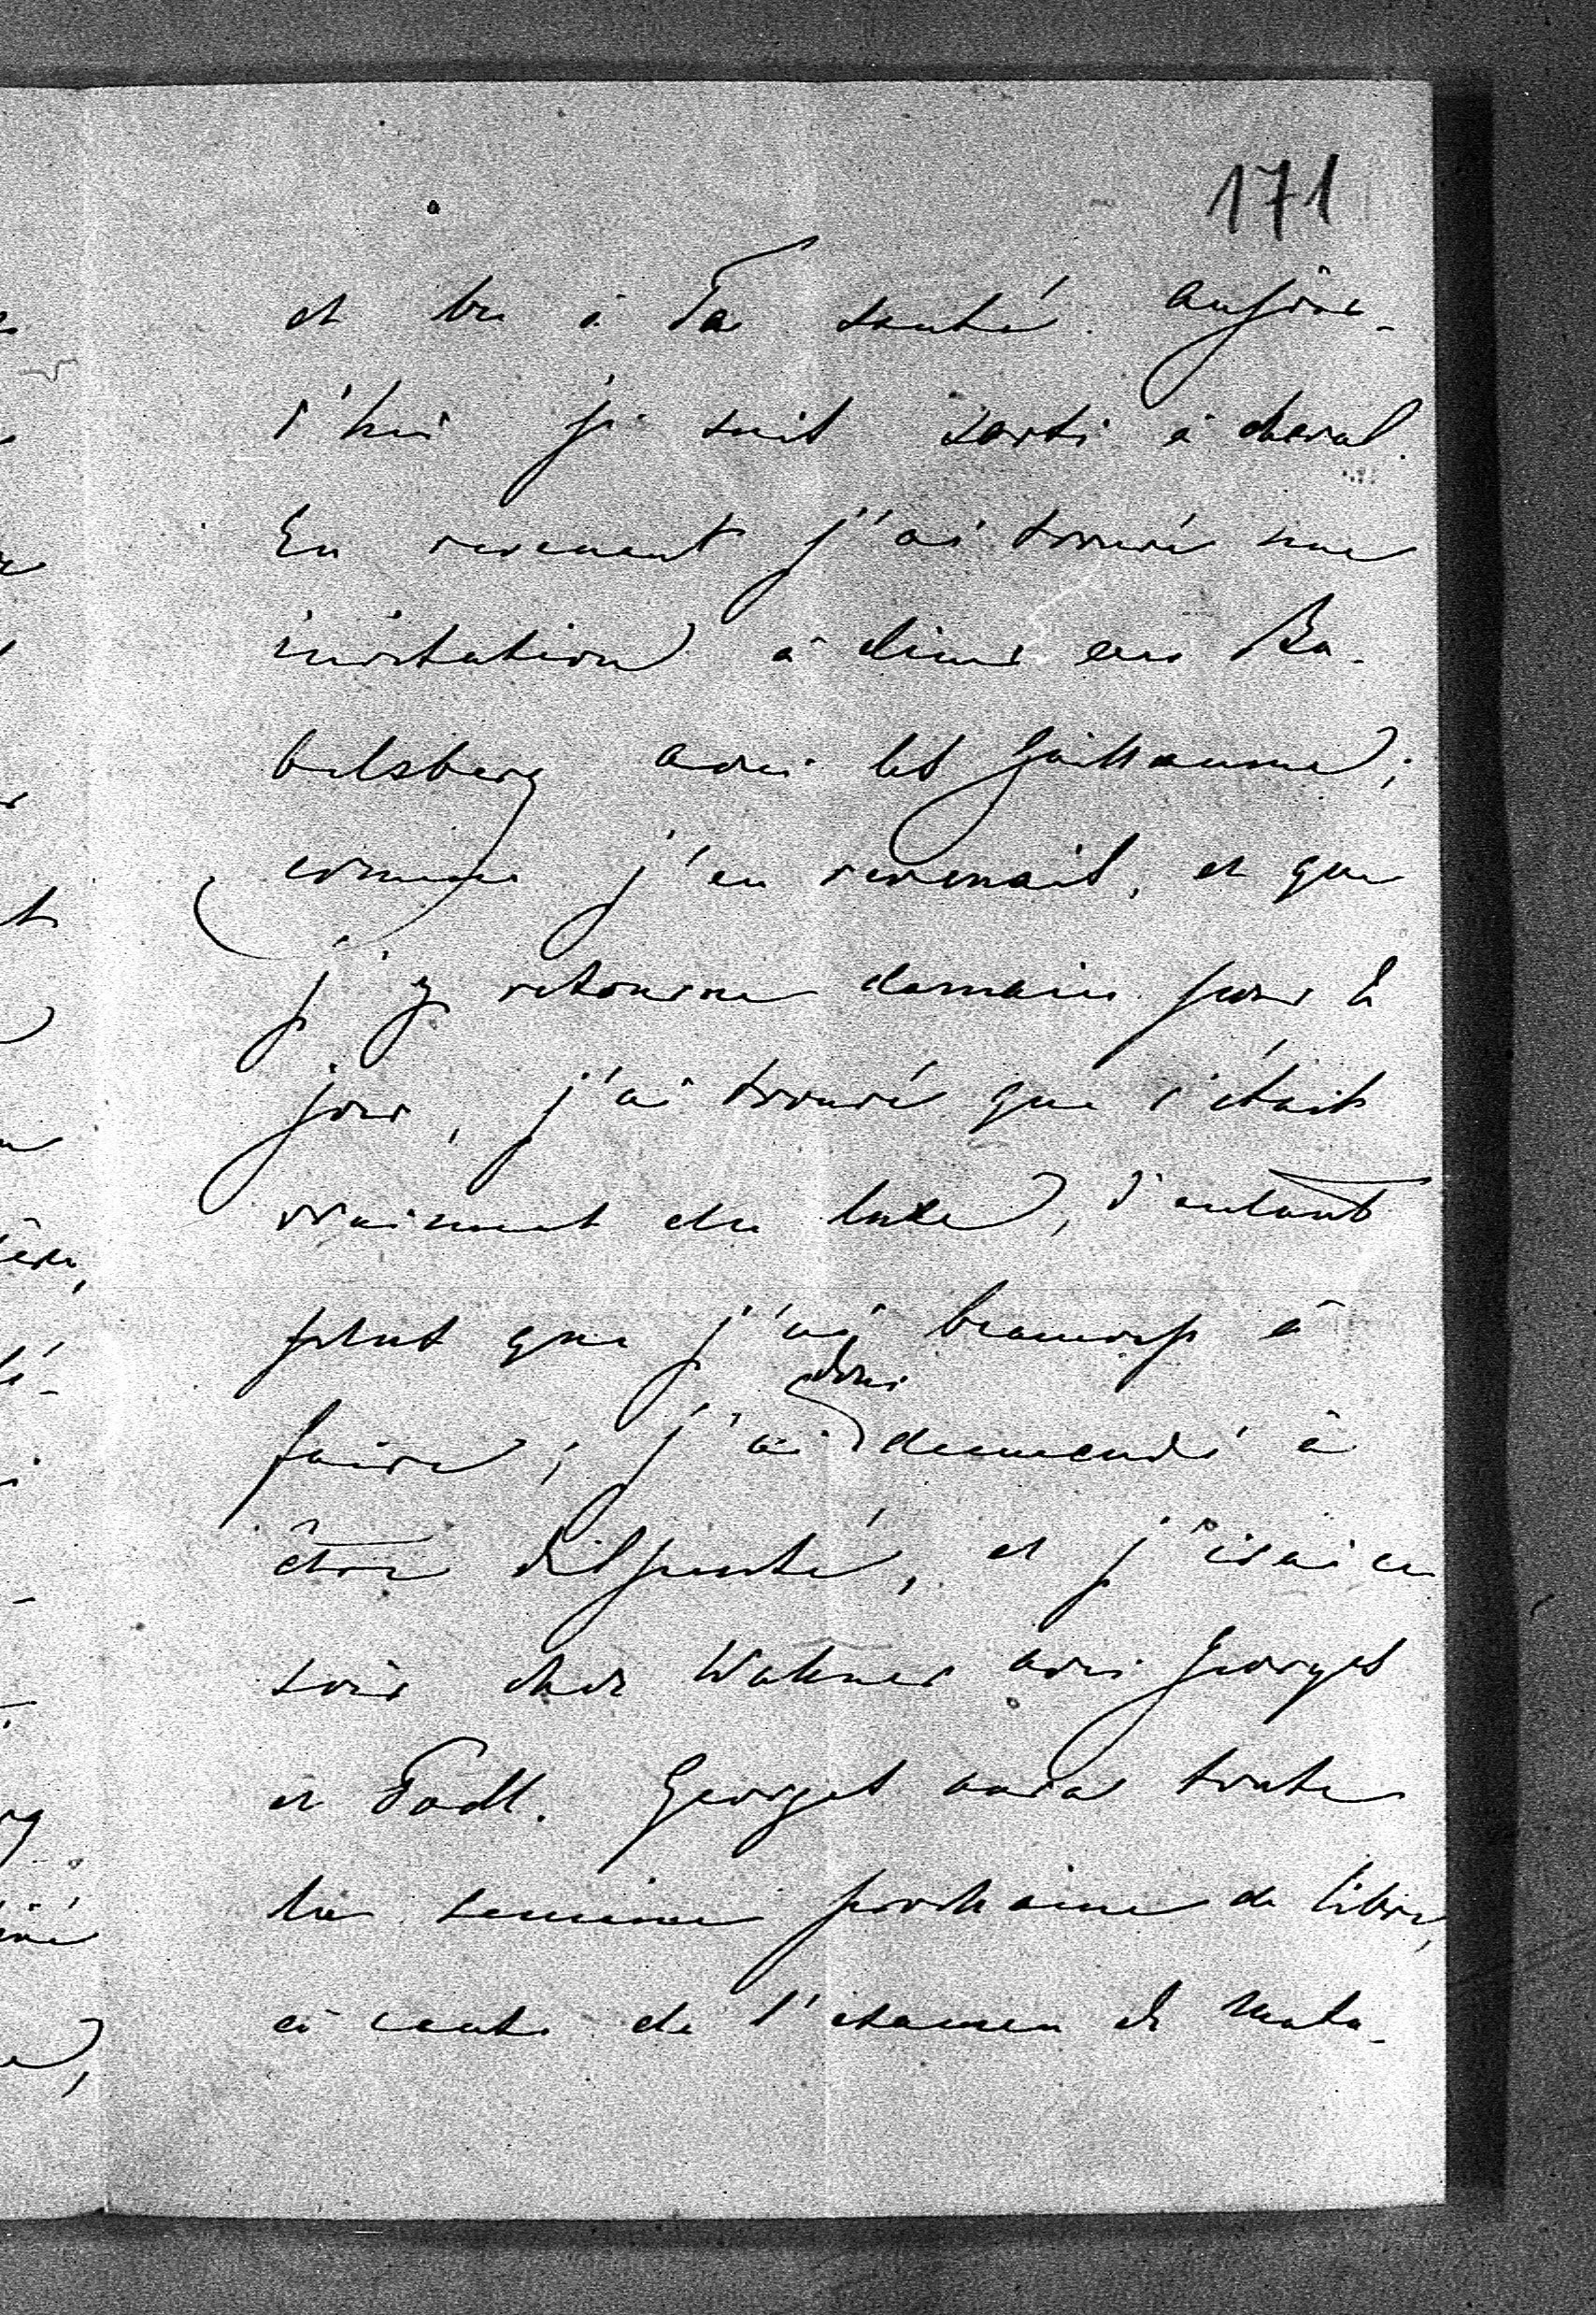 171
et bu à Ta santé. Aujour-
d'hui je suis sorti à cheval.
En revenant j'ai trouvé une
invitation à diner au Ba-
belsberg avec les Guillaume;
comme j'en revenais, et que
j'y retourne demain pour le
jour, j'ai trouvé que c'était
vraiment du luxe, d'autant
plus que j'ai beaucoup à
donc
faire; j'ai demandé à
être dispensé, et j'irai ce
soir chez avec Georges
et Georges aura toute
la semaine prochaine de libre,
à cause de l'examen de Matu-